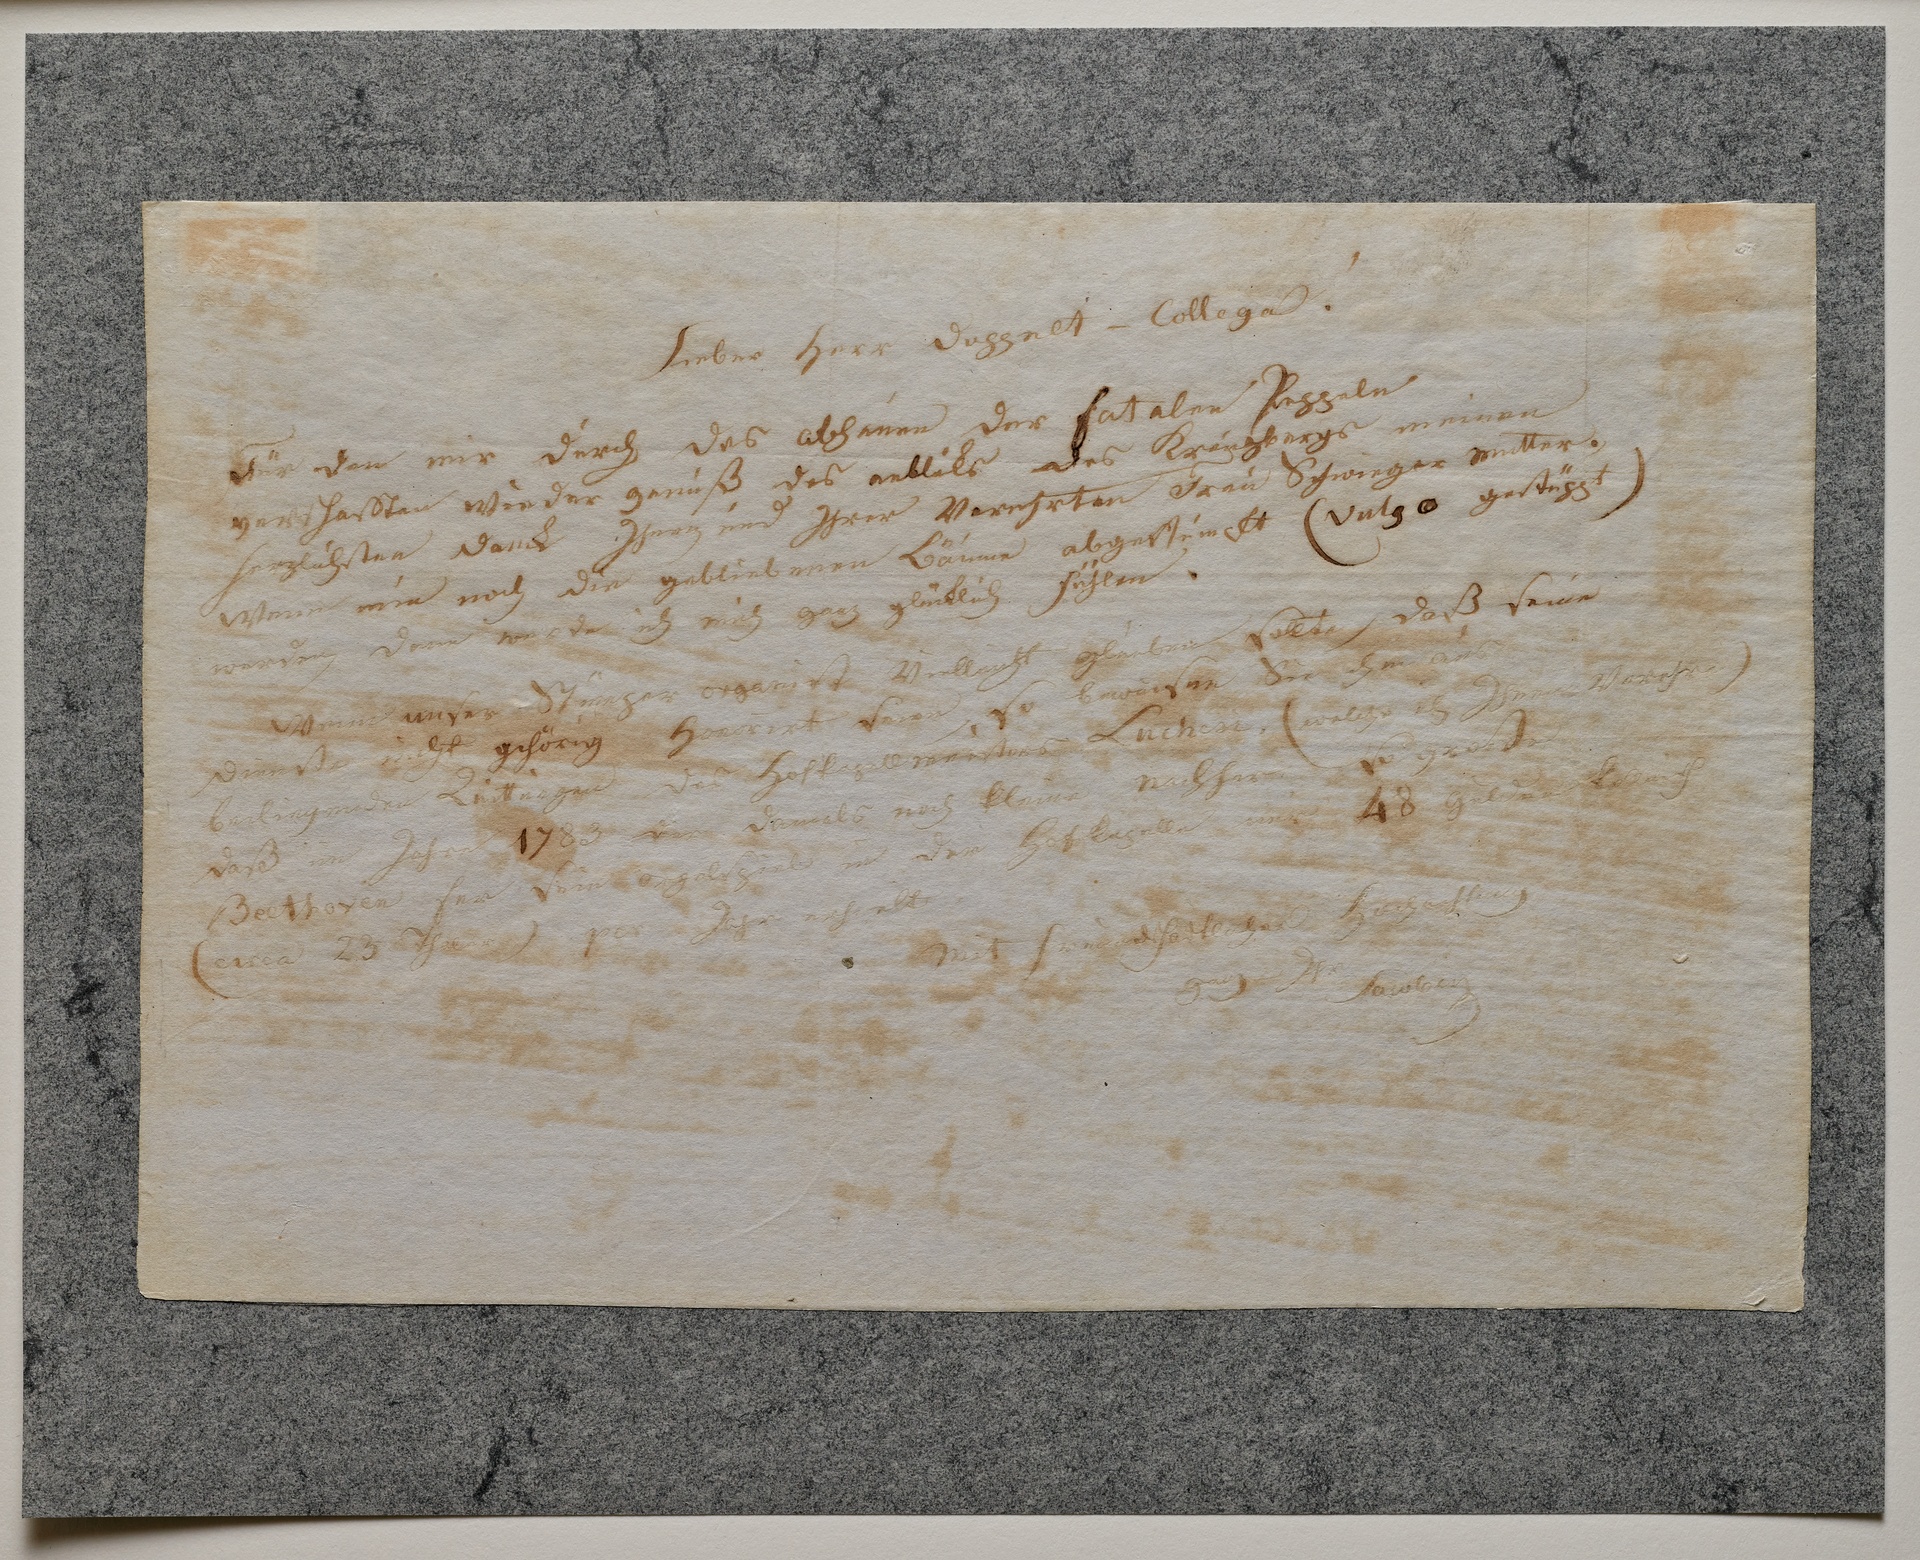 Lieber Herr Doppelt – Collega!
Für den mir durch das abhauen der fatalen Pappeln
verschafften wieder genuß des anbliks des Kreuzbergs meinen
herzlichsten Danck Ihnen und Ihrer Verehrten Frau Schwieger mutter.
Wenn nun noch die gebliebenen Bäume abgestümpft (vulgo gestüppt)
werden, dann werde ich mich ganz glücklich fühlen.
Wenn unser Stümper organist Vielleicht glauben sollte, daß seine
Dienste nicht gehörig Honorirt seien, so beweisen Sie ihm aus
beiliegenden Quittungen des Hofkapellmeisters Luchesi, (welche ich Ihnen Verehre)
daß im Jahre 1783 der damals noch kleine nachher so große
Beethoven für sein orgelspiel in der Hofkapelle nur 48 Gulden
(circa 25 Thaler) per Jahr erhielt.
Mit freundschaftlicher Hochachtung
ganz